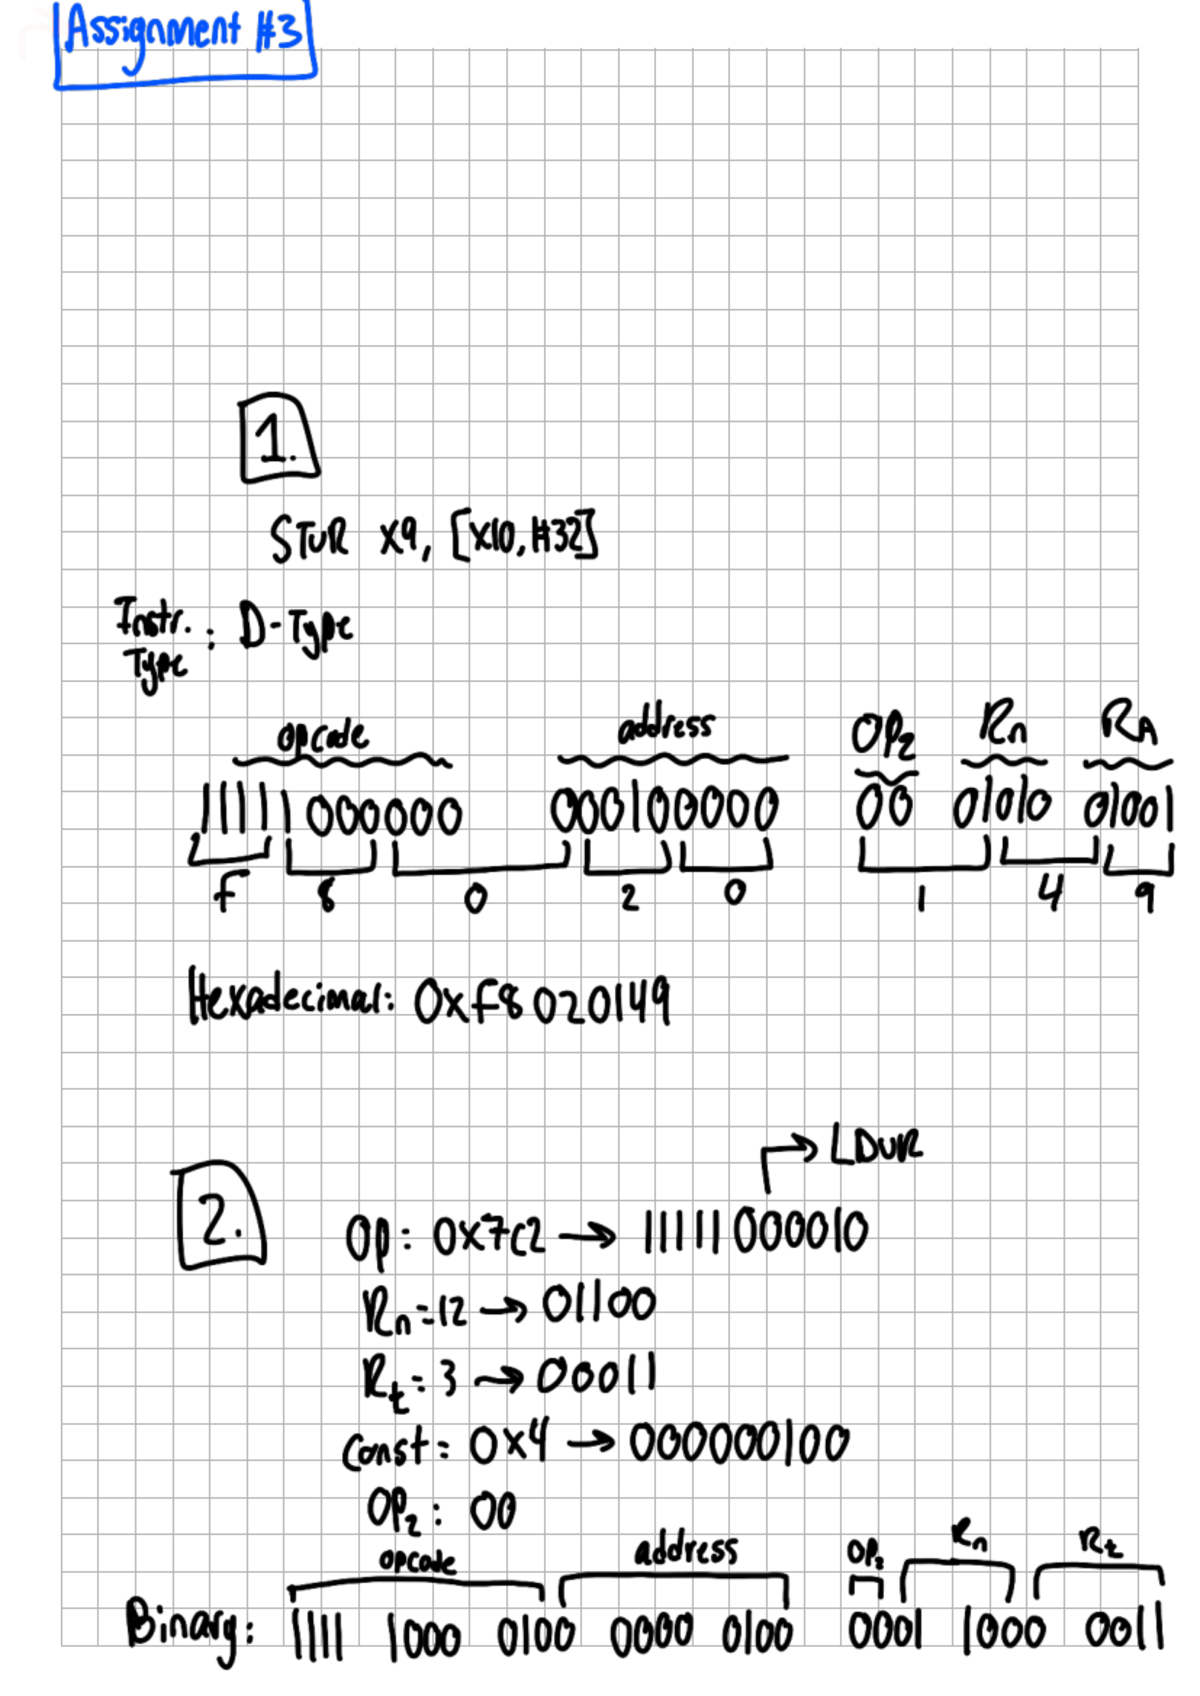 Assignment #3
1.
STUR X9, [X10, #32]
Instr. Type : D-Type
opcode address OP2 Rn RA
11111000000 000100000 00 01010 01001
F 8 0 2 0 1 4 9
Hexadecimal: 0xF8020149
→ LDUR
2.
Op: 0x7c2 → 11111000010
Rn=12 → 01100
Rt=3 → 00011
Const= 0x4 → 000000100
OP2: 00
opcode address OP2 Rn Rt
Binary: 1111 1000 0100 0000 0100 0001 1000 0011